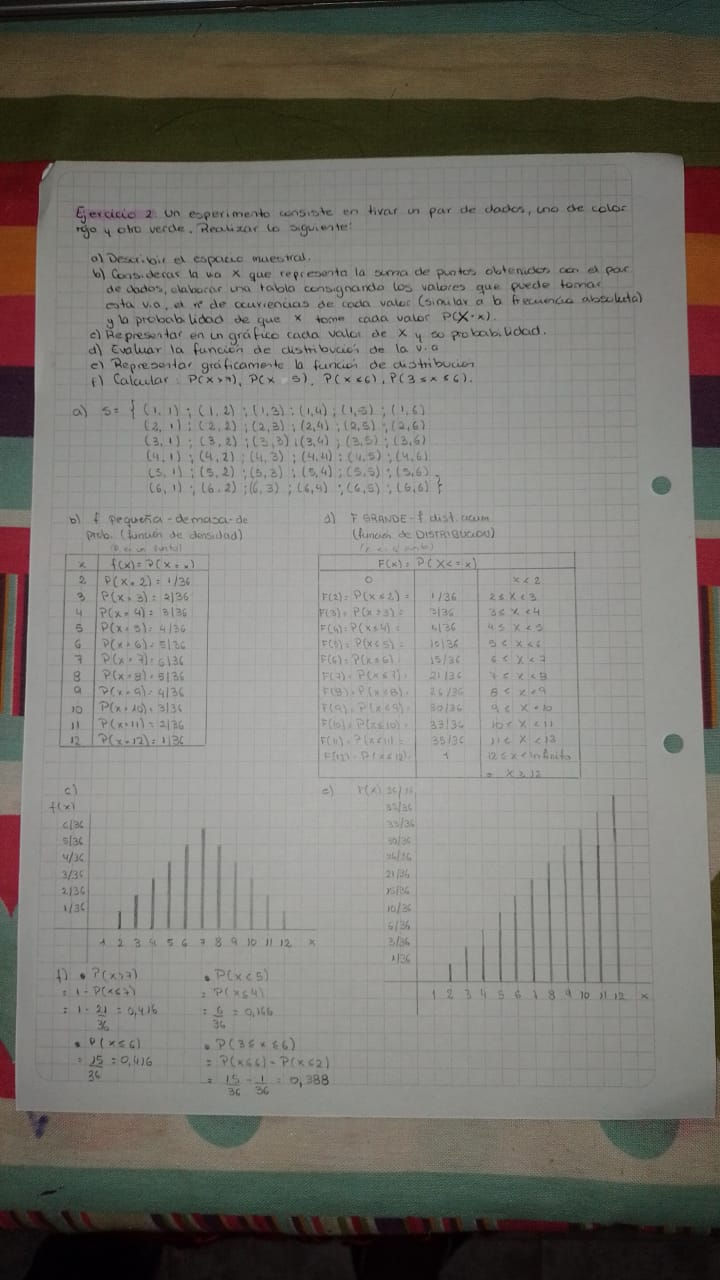 Ejercicio 2: Un esperimento consiste en tirar un par de dados, uno de color
rojo y otro verde. Realizar lo siguiente:
a) Describir el espacio muestral.
b) Considerar la va x que representa la suma de puntos obtenidos con el par
de dados, elaborar una tabla consignando los valores que puede tomar
esta v.a, el nº de ocurrencias de cada valor (similar a la frecuencia absoluta)
y la probabilidad de que x tome cada valor P(X=x).
c) Representar en un gráfico cada valor de X y su probabilidad.
d) Evaluar la función de distribución de la v.a
e) Representar gráficamente la función de distribución
f) Calcular: P(X>7), P(X 5), P(X≤6), P(3≤x≤6).
a) S= { (1,1) ; (1,2) ; (1,3) ; (1,4) ; (1,5) ; (1,6)
(2,1) ; (2,2) ; (2,3) ; (2,4) ; (2,5) ; (2,6)
(3,1) ; (3,2) ; (3,3) ; (3,4) ; (3,5) ; (3,6)
(4,1) ; (4,2) ; (4,3) ; (4,4) ; (4,5) ; (4,6)
(5,1) ; (5,2) ; (5,3) ; (5,4) ; (5,5) ; (5,6)
(6,1) ; (6,2) ; (6,3) ; (6,4) ; (6,5) ; (6,6) }
b) f pequeña - de masa - de
prob. (función de densidad)
x f(x)=P(X=x)
2 P(x=2)= 1/36
3 P(x=3)= 2/36
4 P(x=4)= 3/36
5 P(x=5)= 4/36
6 P(x=6)= 5/36
7 P(x=7)= 6/36
8 P(x=8)= 5/36
9 P(x=9)= 4/36
10 P(x=10)= 3/36
11 P(x=11)= 2/36
12 P(x=12)= 1/36
d) F GRANDE - f dist. acum
(función de DISTRIBUCIÓN)
F(x)= P(X<=x)
0 x<2
F(2)= P(x≤2)= 1/36 2≤x<3
F(3)= P(x≤3)= 3/36 3≤x<4
F(4)= P(x≤4)= 6/36 4≤x<5
F(5)= P(x≤5)= 10/36 5≤x<6
F(6)= P(x≤6) 15/36 6≤x<7
F(7)= P(x≤7)= 21/36 7≤x<8
F(8)= P(x≤8)= 26/36 8≤x<9
F(9)= P(x≤9)= 30/36 9≤x<10
F(10)= P(x≤10)= 33/36 10≤x<11
F(11)= P(x≤11)= 35/36 11≤x<12
F(12)= P(x≤12)= 1 12≤x<infinito
= x≥12
c)
f(x)
6/36
5/36
4/36
3/36
2/36
1/36
1 2 3 4 5 6 7 8 9 10 11 12 x
e) F(x) 36/36
35/36
33/36
30/36
26/36
21/36
15/36
10/36
6/36
3/36
1/36
1 2 3 4 5 6 7 8 9 10 11 12 x
f) • P(x>7)
= 1 - P(x≤7)
= 1 - 21/36 = 0,416
• P(x<5)
= P(x≤4)
= 6/36 = 0,166
• P(x≤6)
= 15/36 = 0,416
• P(3≤x≤6)
= P(x≤6) - P(x≤2)
= 15/36 - 1/36 = 0,388